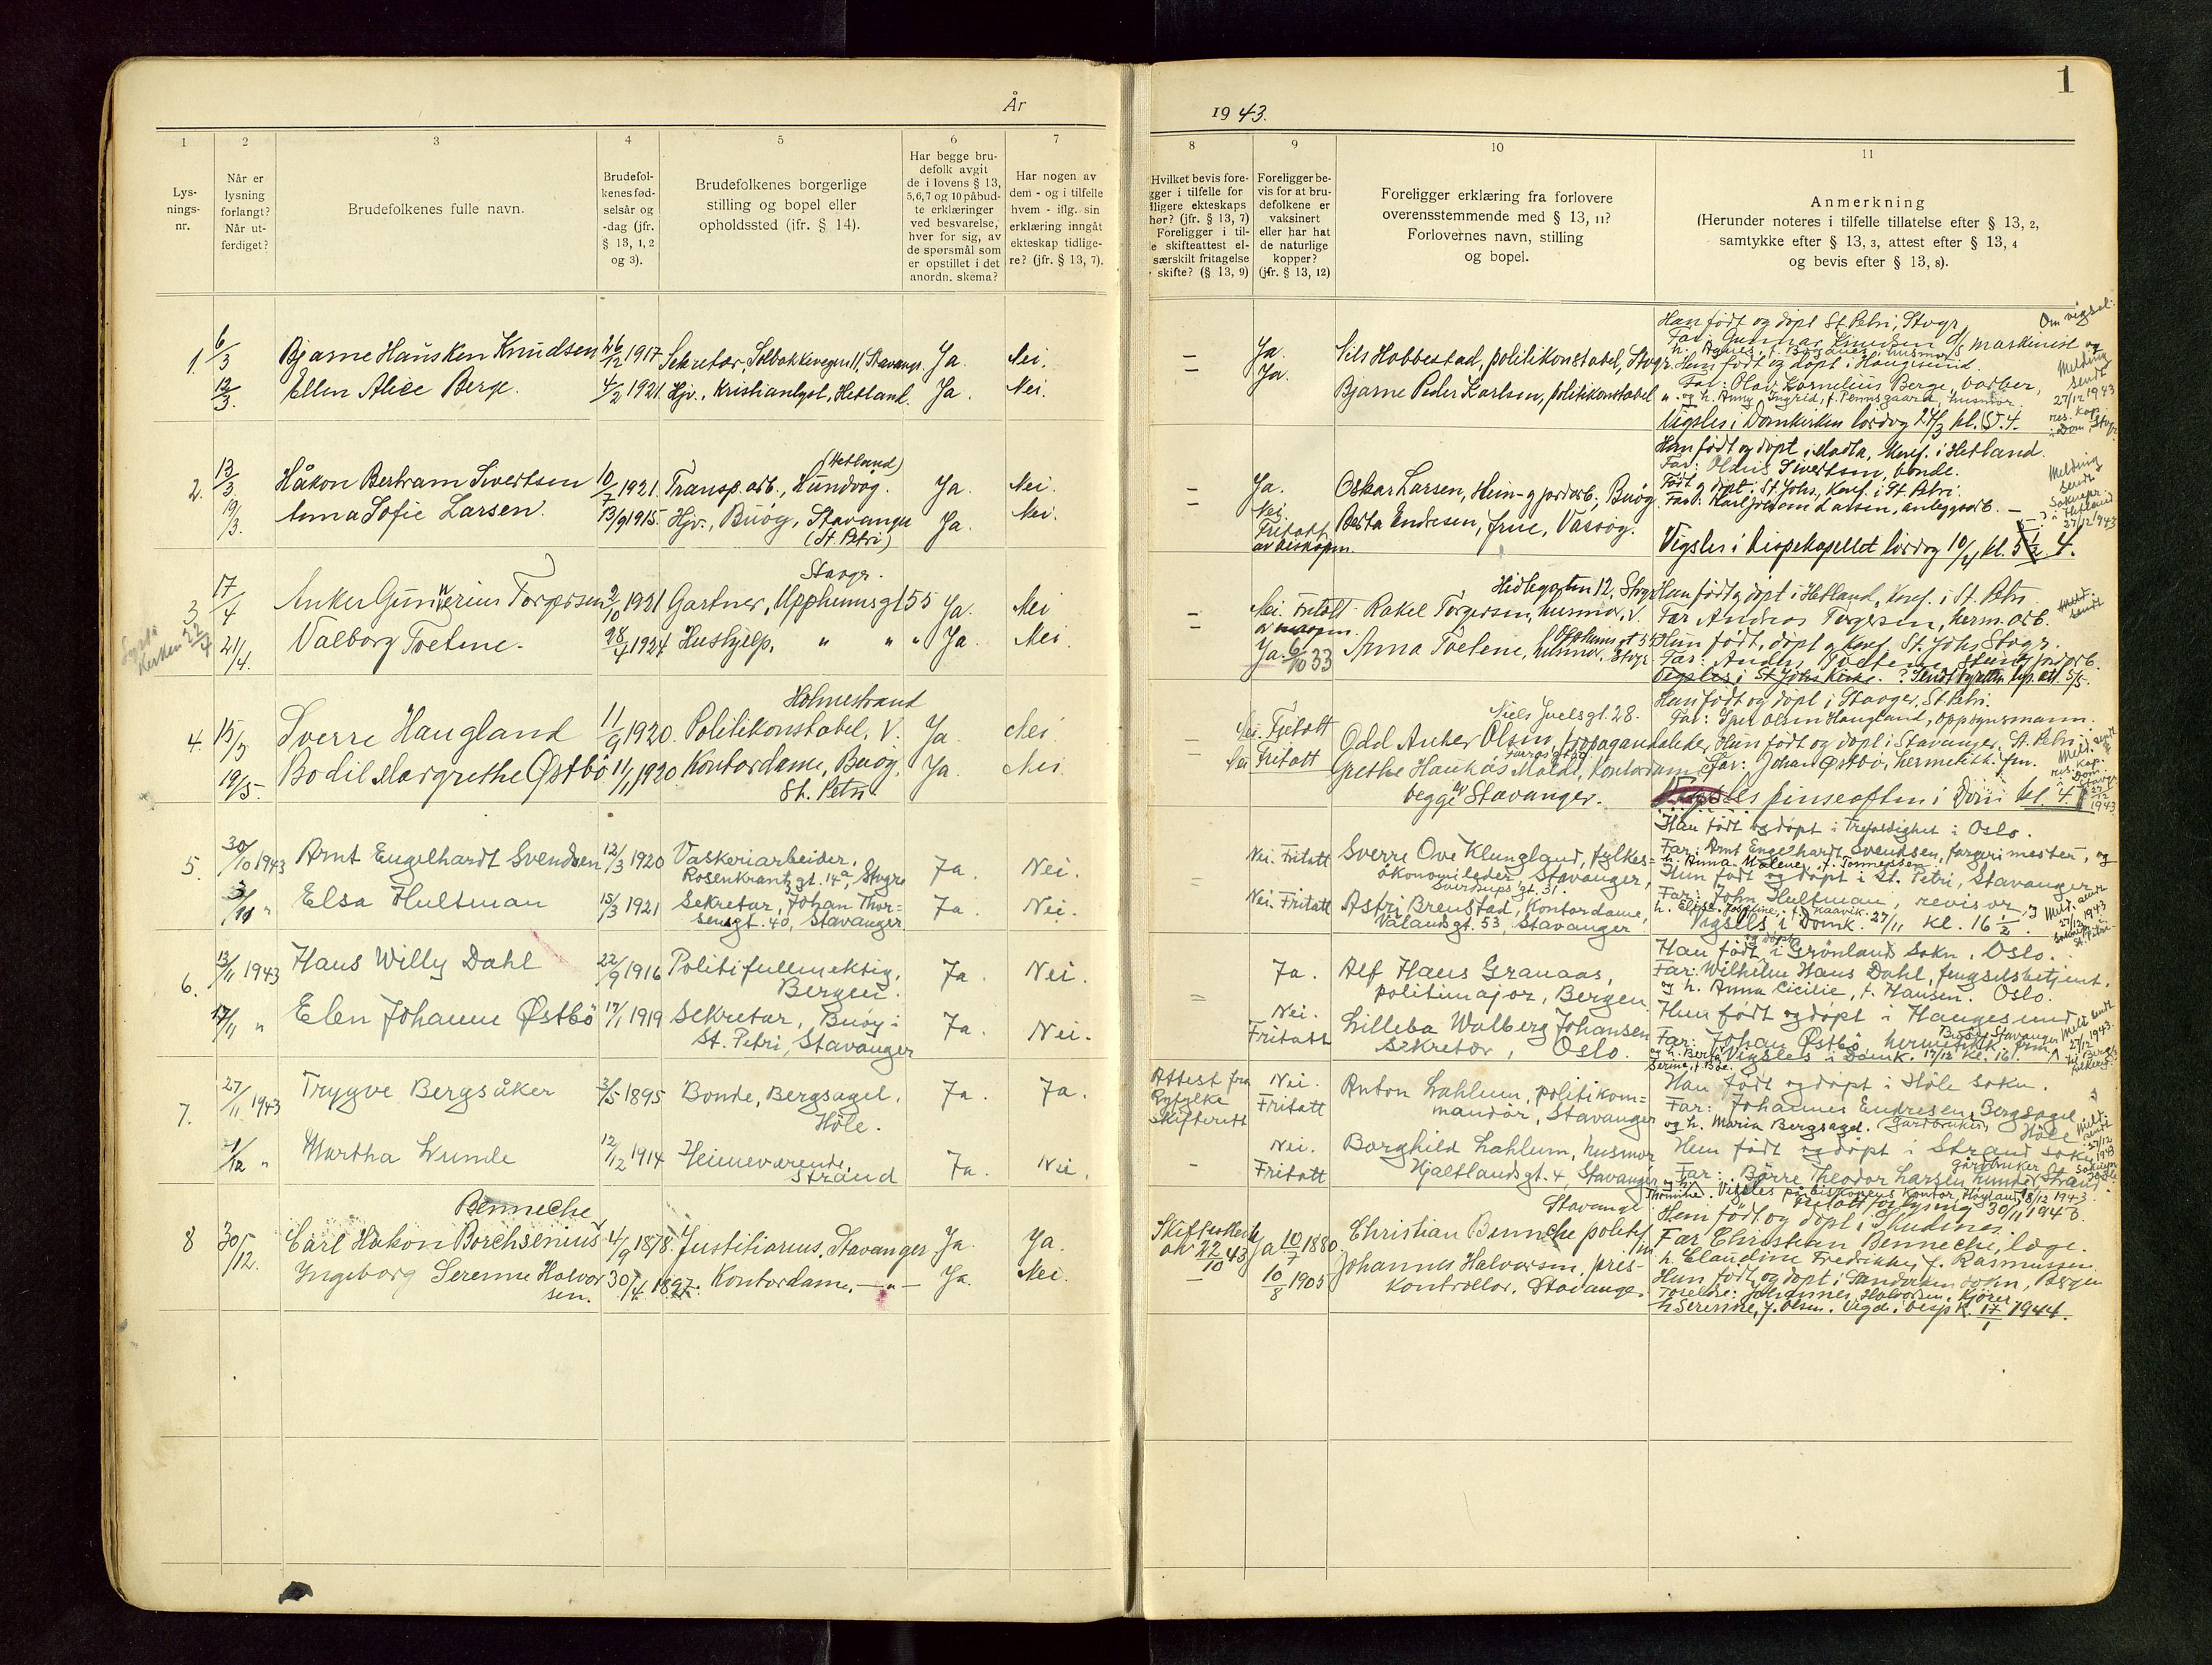 År
1943.
1
1
2
3
4
5
6
7
8
9
10
11
Lys-
nings-
nr.
Når er
lysning
forlangt?
Når ut-
ferdiget?
Brudefolkenes fulle navn.
Brudefol-
kenes fød-
selsår og
-dag (jfr.
§ 13, 1, 2
og 3).
Brudefolkenes borgerlige
stilling og bopel eller
opholdssted (jfr. § 14).
Har begge bru-
defolk avgit
de i lovens § 13,
5, 6, 7 og 10 påbud-
te erklæringer
ved besvarelse,
hver for sig, av
de spørsmål som
er opstillet i det
anordn. skema?
Har nogen av
dem - og i tilfelle
hvem - iflg. sin
erklæring inngåt
ekteskap tidlige-
re? (jfr. § 13, 7).
Hvilket bevis fore-
gger i tilfelle for
dligere ekteskaps
hør? (jfr. § 13, 7)
Foreligger i til-
le skifteattest el-
særskilt fritagelse
skifte? (§ 13, 9)
Foreligger be-
vis for at bru-
defolkene er
vaksinert
eller har hat
de naturlige
kopper?
(jfr. § 13, 12)
Foreligger erklæring fra forlovere
overensstemmende med § 13, 11?
Forlovernes navn, stilling
og bopel.
Anmerkning
(Herunder noteres i tilfelle tillatelse efter § 13, 2,
samtykke efter § 13, 3, attest efter § 13, 4
og bevis efter § 13, 8).
1. 6/3 Bjarne Hausken Knudsen 26/12 1917 Sekretær, Solbakkeveien 11, Stavangr. Ja. Nei.
12/3. Ellen Alice Berge. 4/2 1921. Hjv., Kristianlyst, Hetland. Ja. Nei.
– Ja. Nils Hobbestad, politikonstabel, Stvgr.
– Ja. Bjarne Peder Karlsen, politikonstabel "
Han født og døpt St. Petri, Stvgr.
Far: Gunnar Knudsen d/s maskinist og
Hun født og døpt i Haugesund.
Far: Olav Kornelius Berge, barber,
og h. Anny Ingrid, f. Pennsgaard, husmor.
Vigsles i Domkirken lørdag 27/3 kl.
Om vigsel:
Melding
sendt
27/12 1943
res. kap.
i Dom. Stvgr.
2. 13/3 Håkon Bertram Sivertsen 10/7 1921. Transp. arb., Hundvåg. (Hetland) Ja. Nei.
19/3. Anna Sofie Larsen. 13/9 1915. Hjv., Buøy, Stavanger (St. Petri) Ja. Nei.
– Ja. Oskar Larsen, Hein- og jordarb., Buøy.
– Nei. Fritatt av biskopen. Berta Endresen, frue, Vassøy.
Han født og døpt i Madla, konf. i Hetland.
Far: Sivertsen, bonde.
Født og døpt i St. Johs., konf. i St. Petri.
Far: Karl Larsen, anleggsarb.
Vigsles i bispekapellet lørdag 10/4 kl. 5 1/2 4.
Melding
sendt
Soknepr.
i Hetland
27/12 1943
3. 17/4 Anker Gunnerius Torgersen 2/10 1921 Gartner, Uppheimsgt 55 Stavgr. Ja. Nei
21/4. Valborg Tvetene. 28/4 1924 Hushjelp, " " " Ja. Nei.
– Nei. Fritatt av biskopen. Rakel Torgersen, husmor, V. Hidlegaten 12, Stvgr.
– Ja. 6/10 33 Anna Tvetene, husmor, Stvgr.
Han født og døpt i Hetland, konf. i St. Petri.
Far Andreas Torgersen, herm. arb.
Hun født, døpt og konf. St. Johs Stvgr.
Vigsles i St. Johs Kirke.
Meld.
sendt
4. 15/5 Sverre Haugland 11/9 1920. Politikonstabel, V. Holmestrand Ja. Nei.
19/5. Bodil Margrethe Østbø 11/1 1920 Kontordame, Buøy, St. Petri. Ja. Nei.
– Nei. Fritatt Odd Anker Olsen, propagandaleder, Niels Juelsgt. 28.
– Nei Fritatt Grethe Haukås Molde, kontordame,
begge av Stavanger.
Han født og døpt i Stavger, St. Petri.
Far: Olsen Haugland, oppsynsmann.
Hun født og døpt i Stavanger, St. Petri.
Far: Johan Østbø, hermetikk. fm.
Vigsles pinseaften i Dom kl. 4.
Meld. sendt
res. kap.
Dom.
Stavgr.
27/12
1943
5. 30/10 1943 Arnt Engelhardt Svendsen 12/3 1920 Vaskeriarbeider, Rosenkrantzgt. 14a, Stvgr. Ja. Nei.
3/11 " Elsa Hultman 15/3 1921 Sekretær, Johan Thor-
sensgt. 40, Stavanger Ja. Nei.
Nei. Fritatt Sverre Ove Klungland, fylkes-
økonomileder, Stavanger, Sverdrups gt. 31.
Nei. Fritatt Astri Brenstad, kontordame,
Vålandsgt. 53, Stavanger
Han født og døpt i Trefoldighet i Oslo.
Far: Arnt Engelhardt Svendsen, fargerimester, og
h. Anna Malene, f. Tønnessen
Hun født og døpt i St. Petri, Stavanger
Far: John Hultman, revisor, og
h. Elise Josefine, f. Kaavik.
Vigsles i Domk. 27/11 kl. 16 1/2.
Meld. sendt
27/12 1943
Soknepr.
St. Petri
6. 13/11 1943 Hans Willy Dahl 22/9 1916 Politifullmektig, Bergen. Ja. Nei.
17/11 " Elen Johanne Østbø 17/1 1919 Sekretær, Buøy i
St. Petri, Stavanger Ja. Nei.
= Ja. Alf Hans Granaas,
politimajor, Bergen.
Nei. Fritatt Lilleba Walberg Johansen
sekretær, Oslo.
Han født og døpt i Grønland sokn, Oslo.
Far: Wilhelm Hans Dahl, fengselsbetjent,
og h. Anna Cicilie, f. Hansen. Oslo.
Hun født og døpt i Haugesund
Far: Johan Østbø, hermetikk. fm. Buøy, Stavanger
og h. Berta Serine, f. Bøe. Vigsles i Domk. 17/12 kl. 16.
Meld. sendt
27/12 1943.
7. 27/11 1943 Trygve Bergsåker 3/5 1895 Bonde, Bergsagel, Höle. Ja. Ja.
1/12 " Martha Lunde 12/12 1914 Heimeværende, Strand Ja. Nei
Attest fra
Ryfylke
Skifterett
Nei. Fritatt Anton Lahlum, politikom-
mandør, Stavanger
– Nei. Fritatt Borghild Lahlum, husmor
Hjaltlandsgt. 4, Stavanger
Han født og døpt i Höle sokn.
Far: Johannes Endresen Bergsagel
og h. Maria Bergsagel. gårdbruker, Höle
Hun født og døpt i Strand sokn
Far: Børre Theodor Larsen Lunde, Strand gårdbruker
Vigsles på biskopens kontor, Høgland 8/12 1943.
Fritatt for lysing 30/11 1943.
Meld.
sendt
27/12
1943
8 30/12. Carl Håkon Borchsenius Benneche 4/9 1878. Justitiarius, Stavanger Ja. Ja.
Ingeborg Serenne Halvor-
sen. 30/4 1897. Kontordame. –"– Ja. Nei.
Skifteattest
av 22/10 43 Ja 10/7 1880 Christian Benneche politifm. Stavanger
– 10/8 1905 Johannes Halvorsen, pris-
kontrollør, Stavanger.
Han født og døpt i Skudenes.
Far Christian Benneche, læge.
h. Claudine Fredrikke, f. Rasmussen.
Hun født og døpt i Sandviken sogn, Bergen
Foreldre: Johannes Halvorsen, kjører,
h. Serenne, f. Olsen. Vigd i bispk. 17/1 1944.